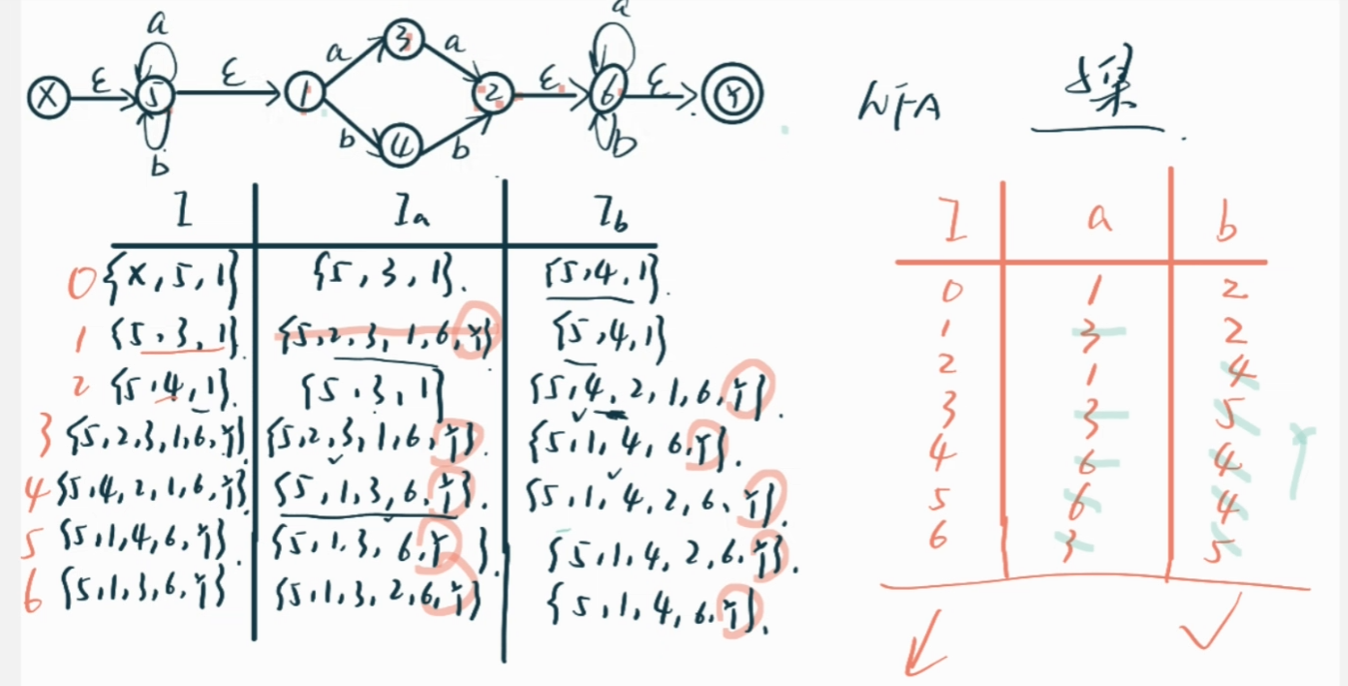 a a a a
X ε 5 ε 1 3 2 ε 6 ε Y
b b 4 b b
NFA 子集.
I Ia Ib
0 {X,5,1} {5,3,1}. {5,4,1}.
1 {5,3,1}. {5,2,3,1,6,Y} {5,4,1}
2 {5,4,1}. {5,3,1} {5,4,2,1,6,Y}.
3 {5,2,3,1,6,Y}. {5,2,3,1,6,Y}. {5,1,4,6,Y}.
4 {5,4,2,1,6,Y}. {5,1,3,6,Y}. {5,1,4,2,6,Y}.
5 {5,1,4,6,Y}. {5,1,3,6,Y}. {5,1,4,2,6,Y}.
6 {5,1,3,6,Y} {5,1,3,2,6,Y} {5,1,4,6,Y}.
I a b
0 1 2
1 3 2
2 1 4
3 3 5
4 6 4
5 6 4
6 3 5